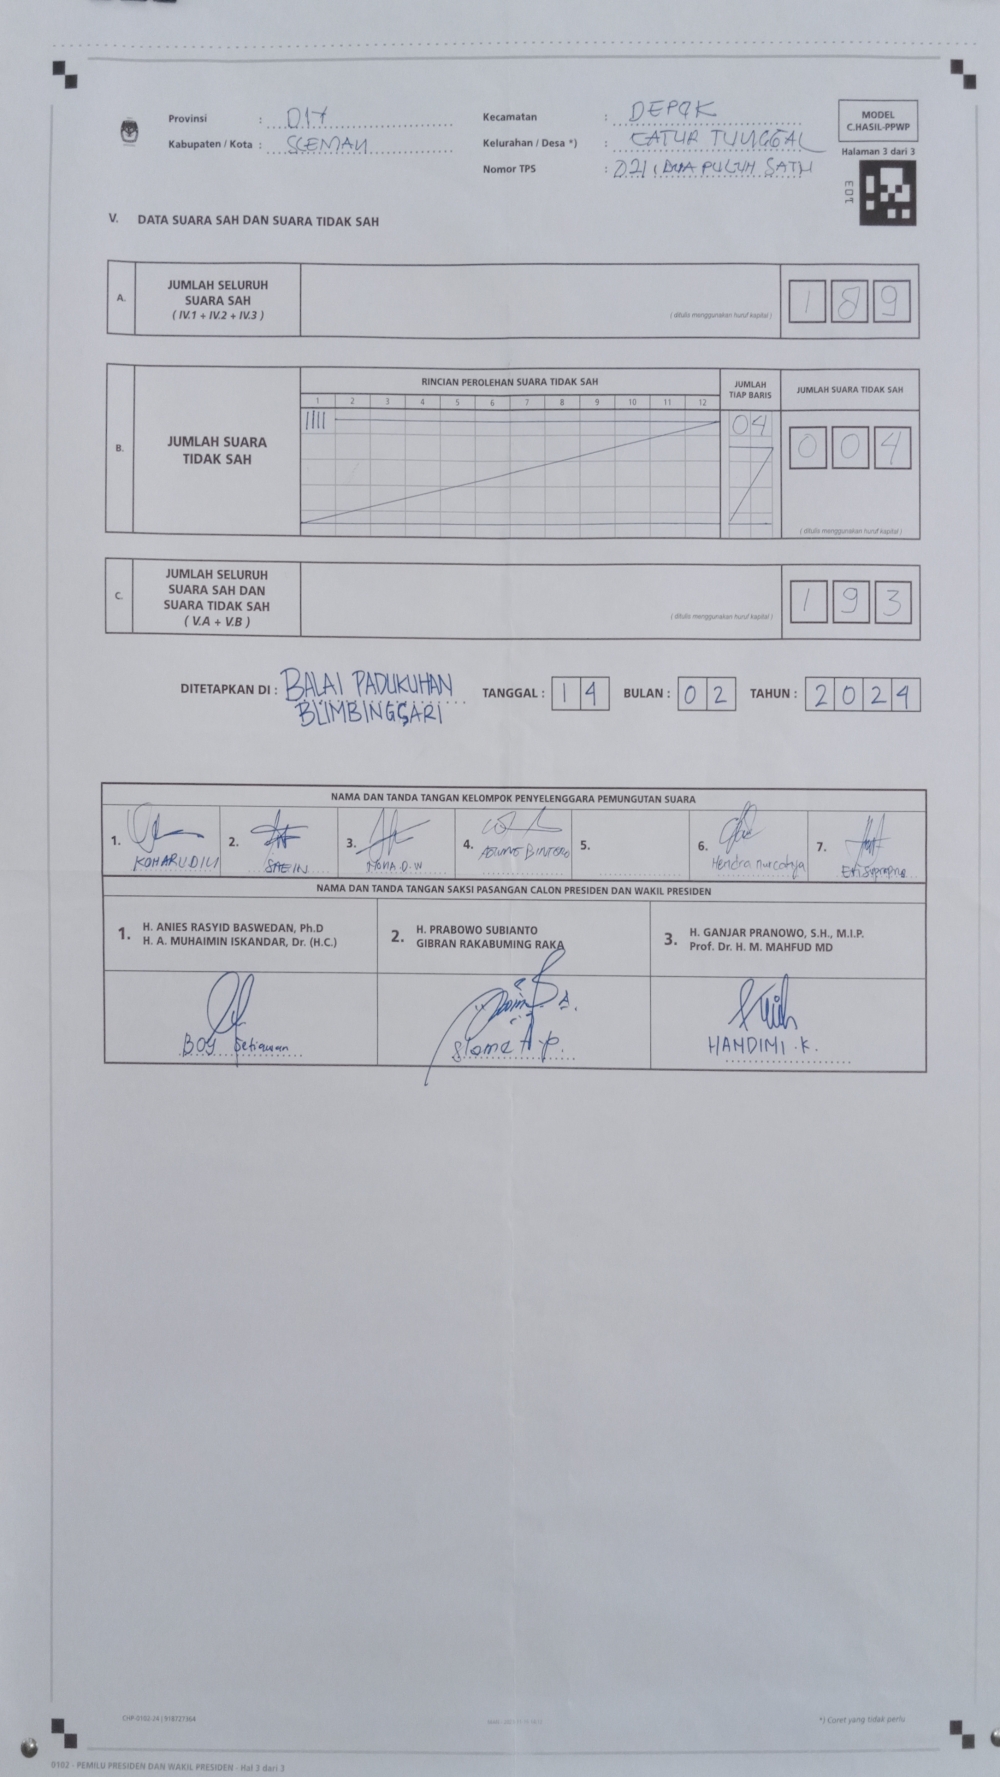 Provinsi : DIY
Kabupaten / Kota : SLEMAN
Kecamatan : DEPOK
Kelurahan / Desa *) : CATUR TUNGGAL
Nomor TPS : 021 (DUA PULUH SATU
MODEL
C.HASIL-PPWP
Halaman 3 dari 3
103
V. DATA SUARA SAH DAN SUARA TIDAK SAH
A. JUMLAH SELURUH
SUARA SAH
( IV.1 + IV.2 + IV.3 )
( ditulis menggunakan huruf kapital )
1 8 9
B. JUMLAH SUARA
TIDAK SAH
RINCIAN PEROLEHAN SUARA TIDAK SAH
1 2 3 4 5 6 7 8 9 10 11 12
JUMLAH
TIAP BARIS
JUMLAH SUARA TIDAK SAH
||||
04
0 0 4
( ditulis menggunakan huruf kapital )
C. JUMLAH SELURUH
SUARA SAH DAN
SUARA TIDAK SAH
( V.A + V.B )
( ditulis menggunakan huruf kapital )
1 9 3
DITETAPKAN DI : BALAI PADUKUHAN
BLIMBINGSARI
TANGGAL : 14 BULAN : 02 TAHUN : 2024
NAMA DAN TANDA TANGAN KELOMPOK PENYELENGGARA PEMUNGUTAN SUARA
1. KOHARUDIN
2.
3.
4.
5.
6. Hendra nurcahya
7.
NAMA DAN TANDA TANGAN SAKSI PASANGAN CALON PRESIDEN DAN WAKIL PRESIDEN
1. H. ANIES RASYID BASWEDAN, Ph.D
H. A. MUHAIMIN ISKANDAR, Dr. (H.C.)
2. H. PRABOWO SUBIANTO
GIBRAN RAKABUMING RAKA
3. H. GANJAR PRANOWO, S.H., M.I.P.
Prof. Dr. H. M. MAHFUD MD
BOY Setiawan
HANDIMI .K.
CHP-0102-24 | 918727364
*) Coret yang tidak perlu
0102 - PEMILU PRESIDEN DAN WAKIL PRESIDEN - Hal 3 dari 3